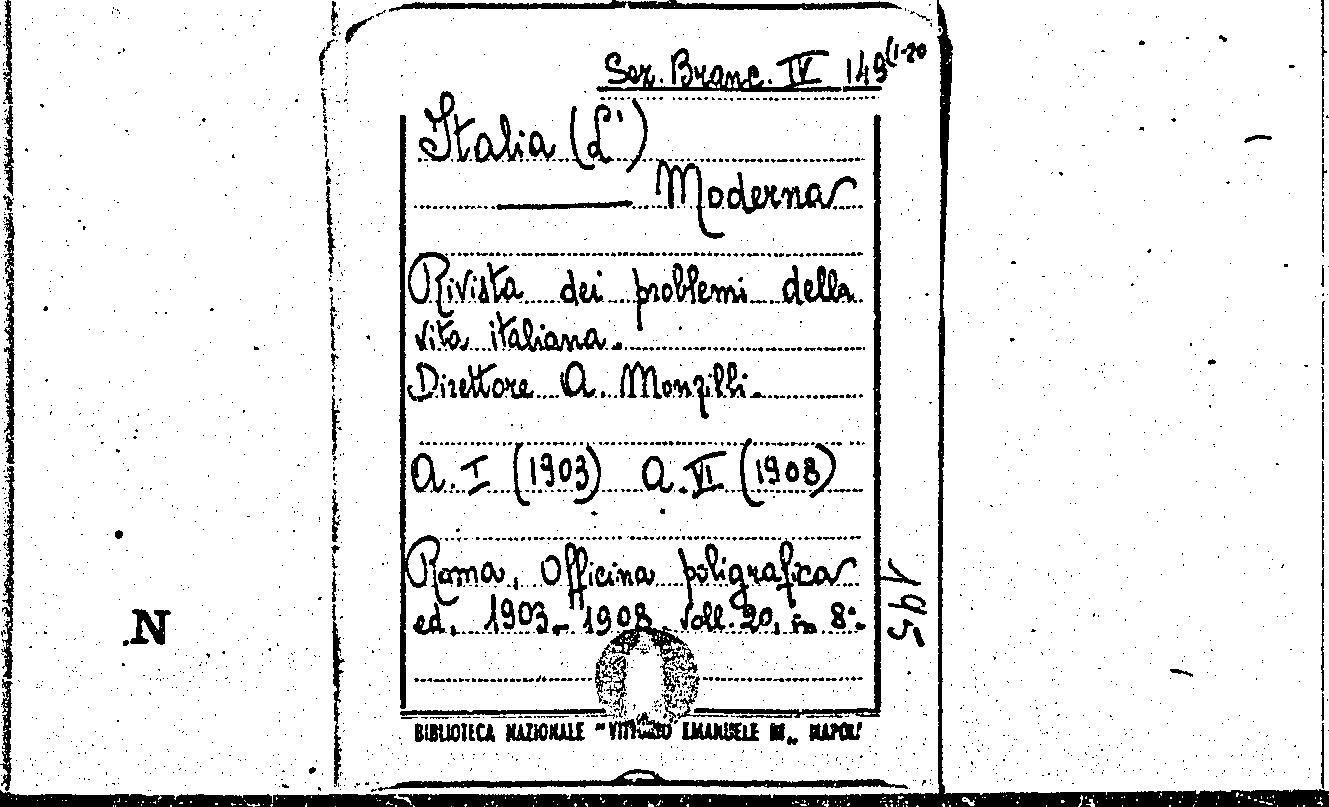 Sez. Branc. IV 149(1-20
Italia (L')
Moderna
Rivista dei problemi della
vita italiana.
Direttore A. Monzilli.
A. I (1903) A. VI (1908)
Roma, Officina poligrafica
ed. 1903-1908. voll. 20, in 8°.
195
N
BIBLIOTECA NAZIONALE "VITTORIO EMANUELE III„ NAPOLI